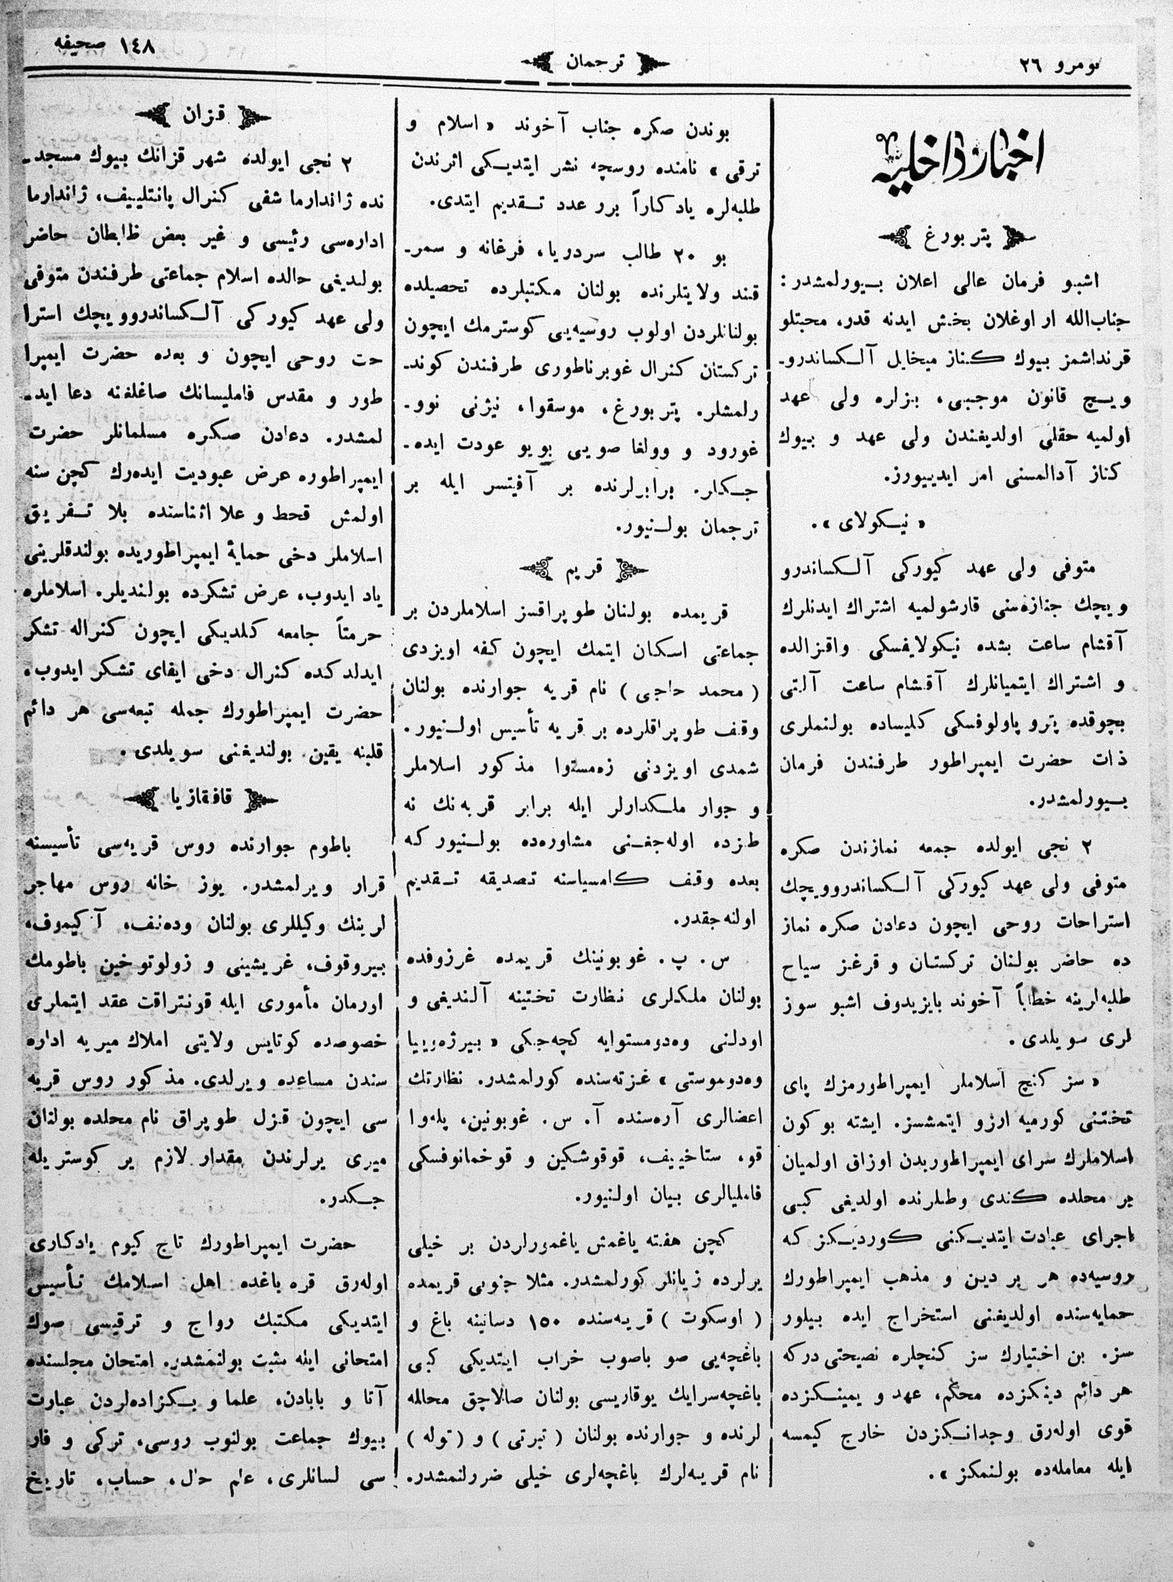 نومرو ۲٦
ترجمان
۱٤۸ صحیفه
اخبار داخلیه
پتربورغ
اشبو فرمان عالی اعلان بیورلمشدر:
جناب‌الله ار اوغلان بخش ایدنه قدر، محبتلو
قرنداشمز بیوك كناز میخایل آلكساندرو-
ویچ قانون موجبی، بزلره ولی عهد
اولمیه حقلی اولدیغندن ولی عهد و بیوك
كناز آدالمسنی امر ایدییورز.
« نیكولای ».
متوفی ولی عهد كیوركی آلكساندرو
ویچك جنازه‌سنی قارشولمیه اشتراك ایدنلرك
آقشام ساعت بشده نیكولایفسكی واقزالده
و اشتراك ایتمیانلرك آقشام ساعت آلتی
بچوقده پترو پاولوفسكی كلیساده بولنملری
ذات حضرت ایمپراطور طرفندن فرمان
بیورلمشدر.
۲ نجی ایولده جمعه نمازندن صكره
متوفی ولی عهد كیوركی آلكساندروویچك
استراحات روحی ایچون دعادن صكره نماز
ده حاضر بولنان تركستان و قرغز سیاح
طلبه‌لرینه خطاباً آخوند بایزیدوف اشبو سوز
لری سویلدی.
« سز كنج اسلاملر ایمپراطورمزك پای
تختنی كورمیه ارزو ایتمشسز. ایشته بوكون
اسلاملرك سرای ایمپراطوریدن اوزاق اولمیان
بر محلده كندی وطنلرنده اولدیغی كبی
اجرای عبادت ایتدیكنی كوردیكز كه
روسیه‌ده هر بر دین و مذهب ایمپراطورك
حمایه‌سنده اولدیغنی استخراج ایده بیلور
سز. بن اختیارك سز كنجلره نصیحتی دركه
هر دائم دینكزده محكم، عهد و یمینكزده
قوی اوله‌رق وجدانكزدن خارج كیمسه
ایله معامله‌ده بولنمكز ».
بوندن صكره جناب آخوند « اسلام و
ترقی » نامنده روسچه نشر ایتدیكی اثرندن
طلبه‌لره یادكاراً برو عدد تقدیم ایتدی.
بو ۲۰ طالب سردریا، فرغانه و سمر-
قند ولایتلرنده بولنان مكتبلرده تحصیلده
بولنانلردن اولوب روسیه‌یی كوسترمك ایچون
تركستان كنرال غوبرناطوری طرفندن كوند-
رلمشلر. پتربورغ، موسقوا، نیژنی نوو-
غورود و وولغا صویی بویو عودت ایده-
جكلر. برابرلرنده بر آفیتسر ایله بر
ترجمان بولنیور.
قریم
قریمده بولنان طوپراقسز اسلاملردن بر
جماعتی اسكان ایتمك ایچون كفه اویزدی
( محمد حاجی ) نام قریه جوارنده بولنان
وقف طوپراقلرده بر قریه تأسیس اولنیور.
شمدی اویزدنی زه‌مستوا مذكور اسلاملر
و جوار ملكدارلر ایله برابر قریه‌نك نه
طرزده اوله‌جغنی مشاوره‌ده بولنیور كه
بعده وقف كامسیاسنه تصدیقه تقدیم
اولنه‌جقدر.
س. پ. غوبونینك قریمده غرزوفده
بولنان ملكلری نظارت تحتینه آلندیغی و
اودلنی وه‌دومستوایه كچه‌جكی « بیرژه‌وییا
وه‌دوموستی » غزته‌سنده كورلمشدر. نظارتك
اعضالری آره‌سنده آ. س. غوبونین، پله‌وا
قو، ستاخییف، قوقوشكین و قوخمانوفسكی
فاملیالری بیان اولنیور.
كچن هفته یاغمش یاغمورلردن بر خیلی
یرلرده زیانلر كورلمشدر. مثلا جنوبی قریمده
( اوسكوت ) قریه‌سنده ۱٥۰ دسانینه باغ و
باغچه‌یی صو باصوب خراب ایتدیكی كبی
باغچه‌سرایك یوقاریسی بولنان صالاچق محاله
لرنده و جوارنده بولنان ( تبرتی ) و ( توله )
نام قریه‌لرك باغچه‌لری خیلی ضررلنمشدر.
قزان
۲ نجی ایولده شهر قزانك بیوك مسجد-
نده ژاندارما شفی كنرال پانتلییف، ژاندارما
اداره‌سی رئیسی و غیر بعض ظابطان حاضر
بولندیغی حالده اسلام جماعتی طرفندن متوفی
ولی عهد كیوركی آلكساندروویچك استرا
حت روحی ایچون و بعده حضرت ایمپرا
طور و مقدس فاملیسانك صاغلغنه دعا اید-
لمشدر. دعادن صكره مسلمانلر حضرت
ایمپراطوره عرض عبودیت ایده‌رك كچن سنه
اولمش قحط و علا اثناسنده بلا تفریق
اسلاملر دخی حمایهٔ ایمپراطوریده بولندقلرینی
یاد ایدوب، عرض تشكرده بولندیلر. اسلاملره
حرمتاً جامعه كلدیكی ایچون كنراله تشكر
ایدلدكده كنرال دخی ایفای تشكر ایدوب،
حضرت ایمپراطورك جمله تبعه‌سی هر دائم
قلبنه یقین بولندیغنی سویلدی.
قافقازیا
باطوم جوارنده روس قریه‌سی تأسیسنه
قرار ویرلمشدر. یوز خانه روس مهاجر
لرینك وكیللری بولنان وده‌نف، آكیموف،
بیروقوف، غریشینی و زولوتوخین باطومك
اورمان مأموری ایله قونتراقت عقد ایتملری
خصوصده كوتایس ولایتی املاك میریه اداره
سندن مساعده ویرلدی. مذكور روس قریه
سی ایچون قزل طوپراق نام محلده بولنان
میری یرلرندن مقدار لازم یر كوستریله
جكدر.
حضرت ایمپراطورك تاج كیوم یادكاری
اوله‌رق قره باغده اهل اسلامك تأسیس
ایتدیكی مكتبك رواج و ترقیسی صوك
امتحانی ایله مثبت بولنمشدر. امتحان مجلسنده
آتا و بابادن، علما و بكزاده‌لردن عبارت
بیوك جماعت بولنوب روسی، تركی و فار
سی لسانلری، علم حال، حساب، تاریخ